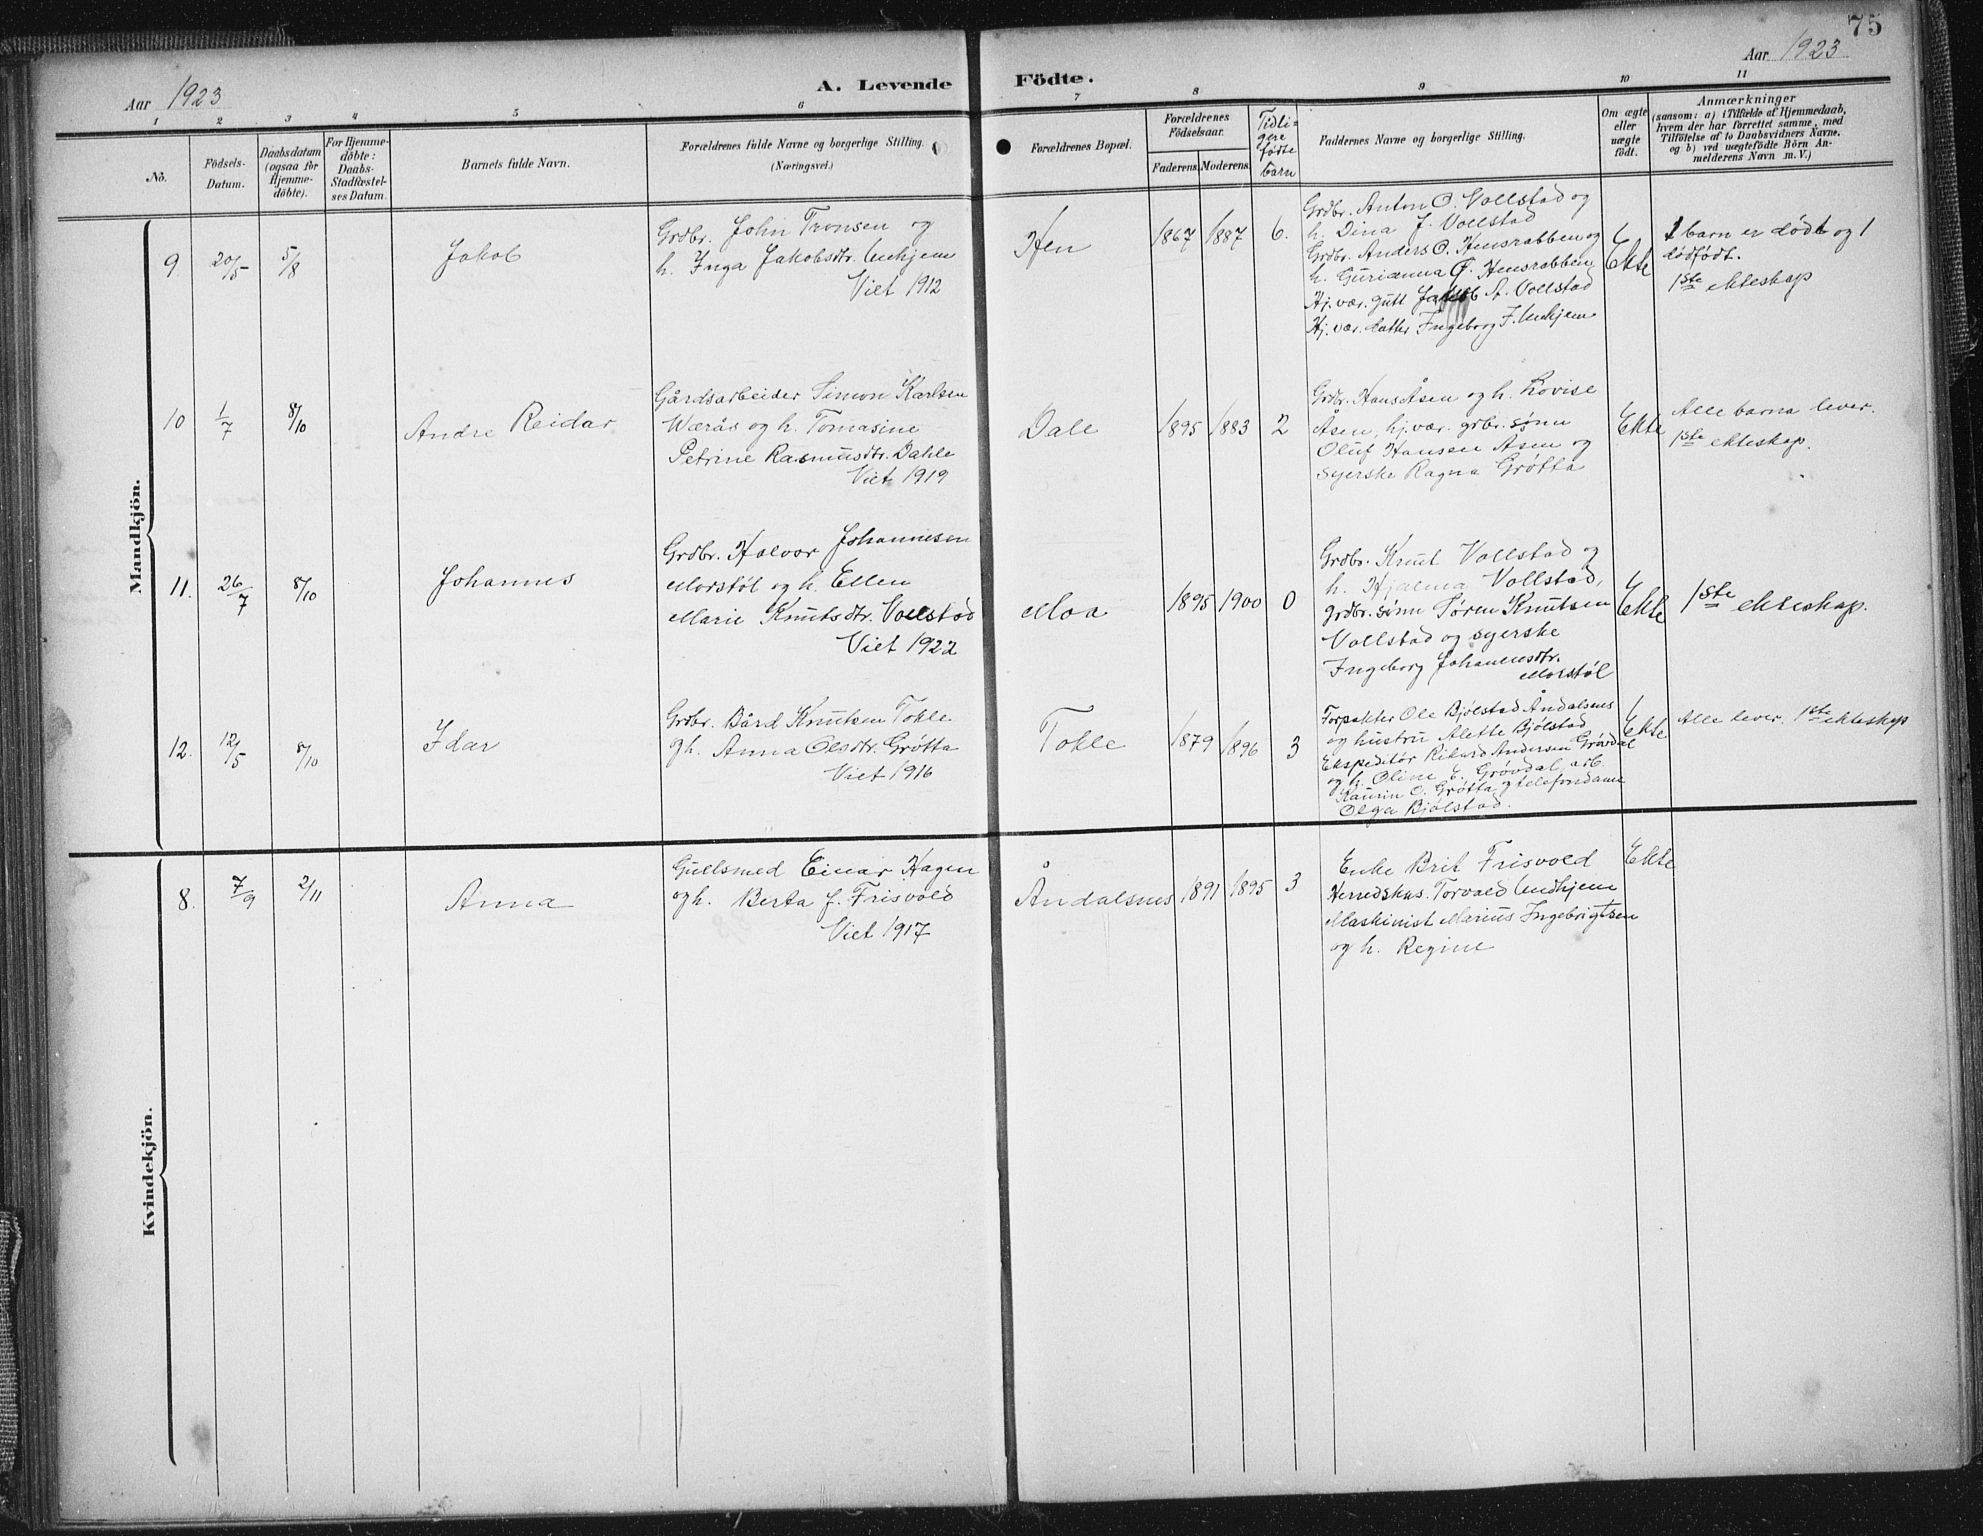 75
Aar 1923
A. Levende
Födte.
Aar 1923
1 2 3 4 5 6 7 8 9 10 11
No.
Födsels-
Datum.
Daabsdatum
(ogsaa for
Hjemme-
döbte).
For Hjemme-
döbte:
Daabs-
Stadfæstel-
ses Datum.
Barnets fulde Navn.
Forældrenes fulde Navne og borgerlige Stilling.
(Næringsvei.)
Forældrenes Bopæl.
Forældrenes
Födselsaar.
Faderens.
Moderens.
Tidli-
gere
fødte
barn
Faddernes Navne og borgerlige Stilling.
Om ægte
eller
uægte
födt.
Anmærkninger
(saasom: a) i Tilfælde af Hjemmedaab,
hvem der har forrettet samme, med
Tilföielse af to Daabsvidners Navne.
og b) ved uægtefödte Börn An-
melderens Navn m. V.)
Mandkjön.
9.
20/5
5/8
Jakob
Grdbr. John Tronsen og
h. Inga Jakobsdtr. Unhjem
Viet 1912
Hen
1867
1887
6.
Grdbr. Anton O. Vollstad og
h. Dina J. Vollstad
Grdbr. Anders O. Hensrabben og
h. Gurianna G. Hensrabben
Hj. vær. gutt Jakob A. Vollstad
Hj. vær. datter Ingeborg J. Unhjem
Ekte
1 barn er dødt og 1
dødfødt.
1ste ekteskap
10
1/7
8/10
Andre Reidar
Gårdsarbeider Simon Karlsen
Wærås og h. Tomasine
Petrine Rasmusdtr. Dahle
Viet 1919
Dale
1895
1883
2
Grdbr. Hans Åsen og h. Lovise
Åsen, hj. vær. grbr. sønn
Oluf Hansen Åsen og
syerske Ragna Grøtta
Ekte
Alle barna lever.
1ste ekteskap.
11.
26/7
8/10
Johannes
Grdbr. Halvor Johannesen
Morstøl og h. Ellen
Marie Knutsdtr. Vollstad
Viet 1922
Moa
1895
1900
0
Grdbr. Knut Vollstad og
h. Hjalma Vollstad,
grdbr. sønn Søren Knutsen
Vollstad og syerske
Ingeborg Johannesdtr.
Morstøl
Ekte
1ste ekteskap.
12.
12/5
8/10
Idar
Grdbr. Bård Knutsen Tokle
og h. Anna Olsdtr. Grøtta
Viet 1916
Tokle
1879
1896
3
Forpakter Ole Bjølstad Åndalsnes
og hustru Alette Bjølstad
Ekspeditør Rikard Andersen Grøvdal
og h. Oline E. Grøvdal, arb.
Laurin O. Grøtta og telefondame
Olga Bjølstad.
Ekte
Alle lever. 1ste ekteskap
Kvindekjön.
8.
7/9
2/11
Anna
Gullsmed Einar Hagen
og h. Berta J. Frisvold
Viet 1917
Åndalsnes
1891
1895
3
Enke Brit Frisvold
Herredskas. Torvald Undhjem
Maskinist Marius Ingebrigtsen
og h. Regine
Ekte